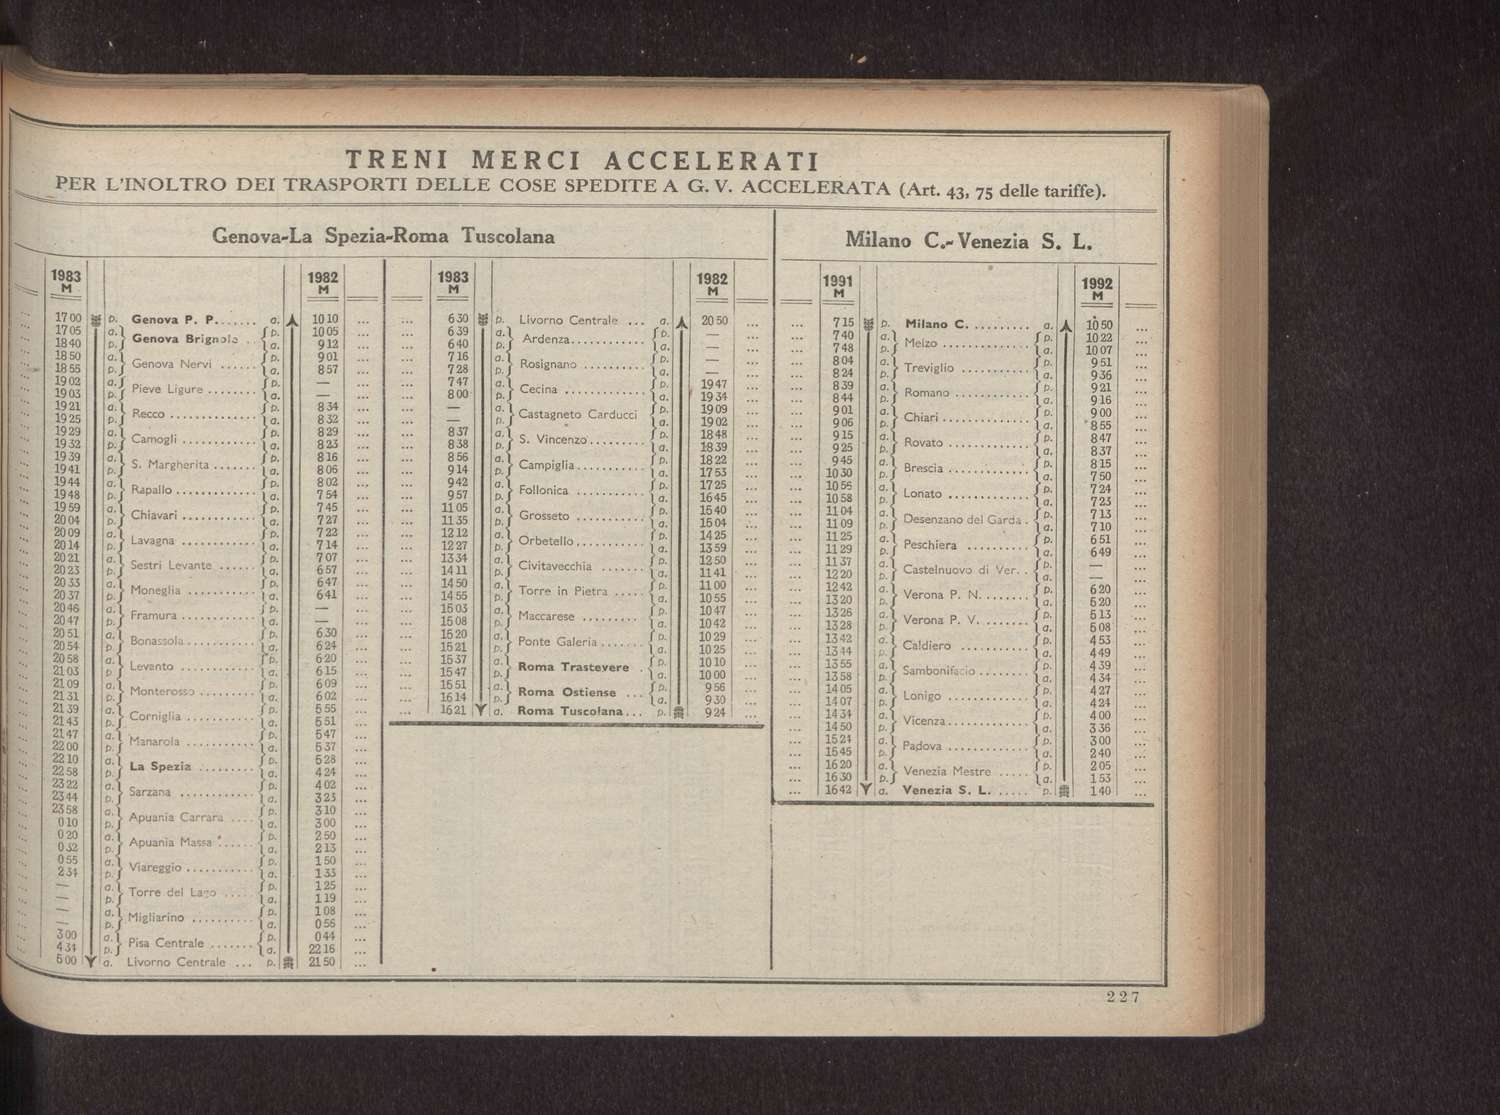 TRENI MERCI ACCELERATI
PER L'INOLTRO DEI TRASPORTI DELLE COSE SPEDITE A G. V. ACCELERATA (Art. 43, 75 delle tariffe).
Genova-La Spezia-Roma Tuscolana
1983 M 1982 M
17 00 p. Genova P. P. ...... a. 10 10
17 05 a. Genova Brignole .. p. 10 05
18 40 p. a. 9 12
18 50 a. Genova Nervi ...... p. 9 01
18 55 p. a. 8 57
19 02 a. Pieve Ligure ........ p. —
19 03 p. a. —
19 21 a. Recco ............ p. 8 34
19 25 p. a. 8 32
19 29 a. Camogli ............ p. 8 29
19 32 p. a. 8 23
19 39 a. S. Margherita ....... p. 8 16
19 41 p. a. 8 06
19 44 a. Rapallo ............ p. 8 02
19 48 p. a. 7 54
19 59 a. Chiavari ............ p. 7 45
20 04 p. a. 7 27
20 09 a. Lavagna ............ p. 7 22
20 14 p. a. 7 14
20 21 a. Sestri Levante ...... p. 7 07
20 23 p. a. 6 57
20 33 a. Moneglia ........... p. 6 47
20 37 p. a. 6 41
20 46 a. Framura ............ p. —
20 47 p. a. —
20 51 a. Bonassola ........... p. 6 30
20 54 p. a. 6 24
20 58 a. Levanto ............ p. 6 20
21 03 p. a. 6 15
21 09 a. Monterosso ......... p. 6 09
21 31 p. a. 6 02
21 39 a. Corniglia ........... p. 5 55
21 43 p. a. 5 51
21 47 a. Manarola ........... p. 5 47
22 00 p. a. 5 37
22 10 a. La Spezia ......... p. 5 28
22 58 p. a. 4 24
23 22 a. Sarzana ............ p. 4 02
23 44 p. a. 3 23
23 58 a. Apuania Carrara .... p. 3 10
0 10 p. a. 3 00
0 20 a. Apuania Massa ...... p. 2 50
0 32 p. a. 2 13
0 55 a. Viareggio ........... p. 1 50
2 34 p. a. 1 33
— a. Torre del Lago ..... p. 1 25
— p. a. 1 19
— a. Migliarino .......... p. 1 08
— p. a. 0 56
3 00 a. Pisa Centrale ....... p. 0 44
4 34 p. a. 22 16
5 00 a. Livorno Centrale ... p. 21 50
1983 M 1982 M
6 30 p. Livorno Centrale ... a. 20 50
6 39 a. Ardenza ............ p. —
6 40 p. a. —
7 16 a. Rosignano .......... p. —
7 28 p. a. —
7 47 a. Cecina ............. p. 19 47
8 00 p. a. 19 34
— a. Castagneto Carducci p. 19 09
— p. a. 19 02
8 37 a. S. Vincenzo ......... p. 18 48
8 38 p. a. 18 39
8 56 a. Campiglia ........... p. 18 22
9 14 p. a. 17 53
9 42 a. Follonica ........... p. 17 25
9 57 p. a. 16 45
11 05 a. Grosseto ........... p. 15 40
11 35 p. a. 15 04
12 12 a. Orbetello ........... p. 14 25
12 27 p. a. 13 59
13 34 a. Civitavecchia ....... p. 12 50
14 11 p. a. 11 41
14 50 a. Torre in Pietra ..... p. 11 00
14 55 p. a. 10 55
15 03 a. Maccarese ......... p. 10 47
15 08 p. a. 10 42
15 20 a. Ponte Galeria ....... p. 10 29
15 21 p. a. 10 25
15 37 a. Roma Trastevere . p. 10 10
15 47 p. a. 10 00
15 51 a. Roma Ostiense ... p. 9 56
16 14 p. a. 9 30
16 21 a. Roma Tuscolana ... p. 9 24
Milano C.-Venezia S. L.
1991 M 1992 M
7 15 p. Milano C. ......... a. 10 50
7 40 a. Melzo .............. p. 10 22
7 48 p. a. 10 07
8 04 a. Treviglio ........... p. 9 51
8 24 p. a. 9 36
8 39 a. Romano ............ p. 9 21
8 44 p. a. 9 16
9 01 a. Chiari .............. p. 9 00
9 06 p. a. 8 55
9 15 a. Rovato ............. p. 8 47
9 25 p. a. 8 37
9 45 a. Brescia ............. p. 8 15
10 30 p. a. 7 50
10 56 a. Lonato ............. p. 7 24
10 58 p. a. 7 23
11 04 a. Desenzano del Garda . p. 7 13
11 09 p. a. 7 10
11 25 a. Peschiera .......... p. 6 51
11 29 p. a. 6 49
11 37 a. Castelnuovo di Ver. . p. —
12 20 p. a. —
12 42 a. Verona P. N. ....... p. 6 20
13 20 p. a. 5 20
13 26 a. Verona P. V. ....... p. 5 13
13 28 p. a. 5 08
13 42 a. Caldiero ........... p. 4 53
13 44 p. a. 4 49
13 55 a. Sambonifacio ........ p. 4 39
13 58 p. a. 4 34
14 05 a. Lonigo ............. p. 4 27
14 07 p. a. 4 24
14 34 a. Vicenza ............. p. 4 00
14 50 p. a. 3 36
15 24 a. Padova ............. p. 3 00
15 45 p. a. 2 40
16 20 a. Venezia Mestre ..... p. 2 05
16 30 p. a. 1 53
16 42 a. Venezia S. L. ..... p. 1 40
227